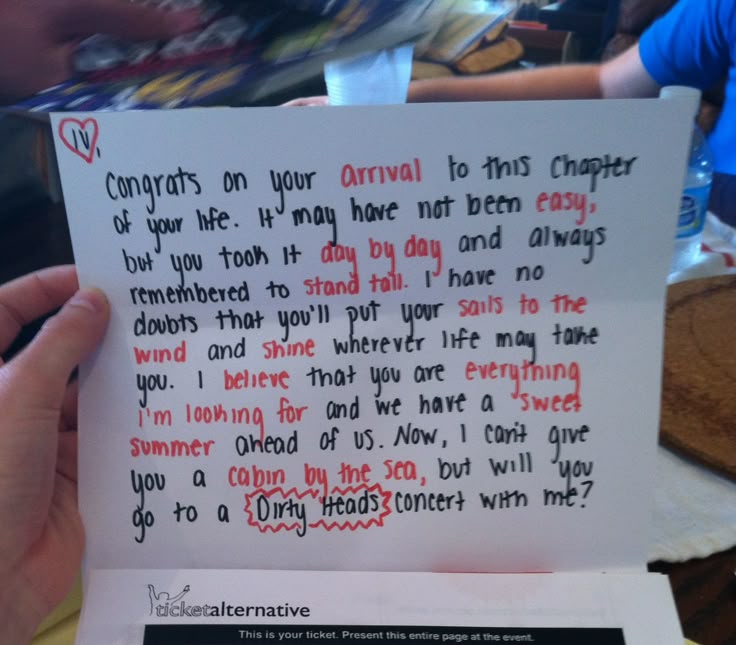 IV.
Congrats on your arrival to this chapter
of your life. It may have not been easy,
but you took it day by day and always
remembered to stand tall. I have no
doubts that you'll put your sails to the
wind and shine wherever life may take
you. I believe that you are everything
I'm looking for and we have a sweet
summer ahead of us. Now, I can't give
you a cabin by the sea, but will you
go to a Dirty Heads concert with me?
ticketalternative
This is your ticket. Present this entire page at the event.